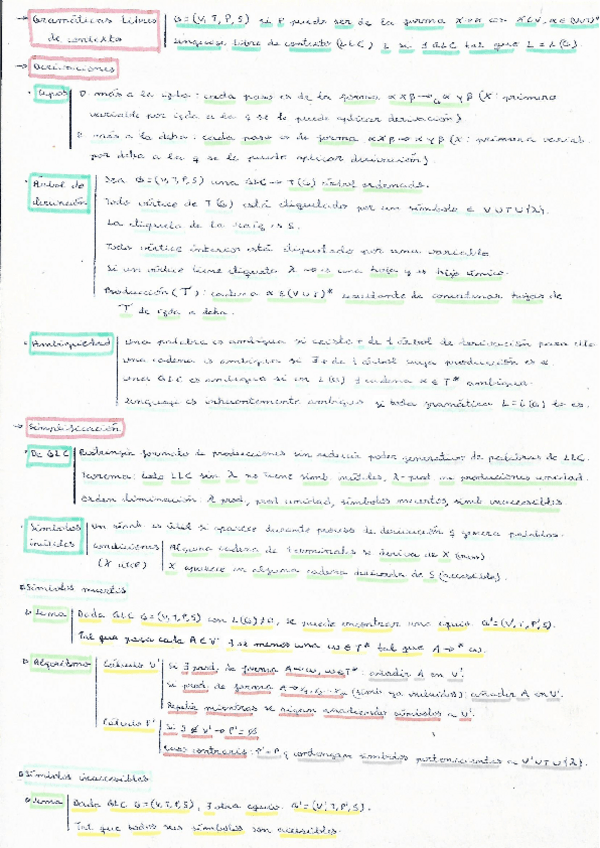 → Gramáticas libres de contexto | G=(V,T,P,S) si P puede ser de la forma X→α con X∈V, α∈(V∪T)*
Lenguaje libre de contexto (LLC) L si ∃ GLC tal que L = L(G)
→ Derivaciones
· Tipos | D. más a la izda: cada paso es de la forma αXβ → αγβ (X: primera
variable por izda a la q se le puede aplicar derivación).
D. más a la dcha: cada paso es de forma αXβ → αγβ (X: primera variab.
por dcha a la q se le puede aplicar derivación).
· Árbol de derivación | Sea G=(V,T,P,S) una GLC → T(G) árbol ordenado.
Todo vértice de T(G) está etiquetado por un símbolo ∈ V∪T∪{λ}.
La etiqueta de la raíz es S.
Todo vértice interior está etiquetado por una variable
Si un vértice tiene etiqueta λ → es una hoja y es hijo único.
Producción (T): cadena α∈(V∪T)* resultante de concatenar hojas de
T de izda a dcha.
· Ambigüedad | Una palabra es ambigua si existe + de 1 árbol de derivación para ella
Una cadena es ambigua si ∃ + de 1 árbol cuya producción es α.
Una GLC es ambigua si en L(G) ∃ cadena α∈T* ambigua.
Lenguaje es inherentemente ambiguo si toda gramática L=L(G) lo es.
→ Simplificación
· De GLC | Restringir formato de producciones sin reducir poder generativo de LLC.
Teorema: todo LLC sin λ no tiene simb. inútiles, λ-prod. ni producciones unidad.
Orden eliminación: λ prod, prod unidad, símbolos muertos, simb inaccesibles
· Símbolos inútiles | Un simb. es útil si aparece durante proceso de derivación q genera palabras.
Condiciones (X útil) | Alguna cadena de terminales se deriva de X
X aparece en alguna cadena derivada de S (accesible).
Símbolos muertos
Lema | Dada GLC G=(V,T,P,S) con L(G)≠∅, se puede encontrar una equiv. G'=(V',T,P',S).
Tal que para cada A∈V' ∃ al menos una ω∈T* tal que A→*ω.
Algoritmo | Cálculo V' | Si ∃ prod. de forma A→ω, ω∈T*: añadir A en V'.
Si prod. de forma A→ (simb ya incluidos): añadir A en V'.
Repetir mientras se sigan añadiendo símbolos a V'.
Cálculo P' | Si S∉V' → P'=∅
Caso contrario: P'=P q contengan símbolos pertenecientes a V'∪T∪{λ}.
Símbolos inaccesibles
Lema | Dada GLC G=(V,T,P,S), ∃ otra equiv. G'=(V',T',P',S).
Tal que todos sus símbolos son accesibles.